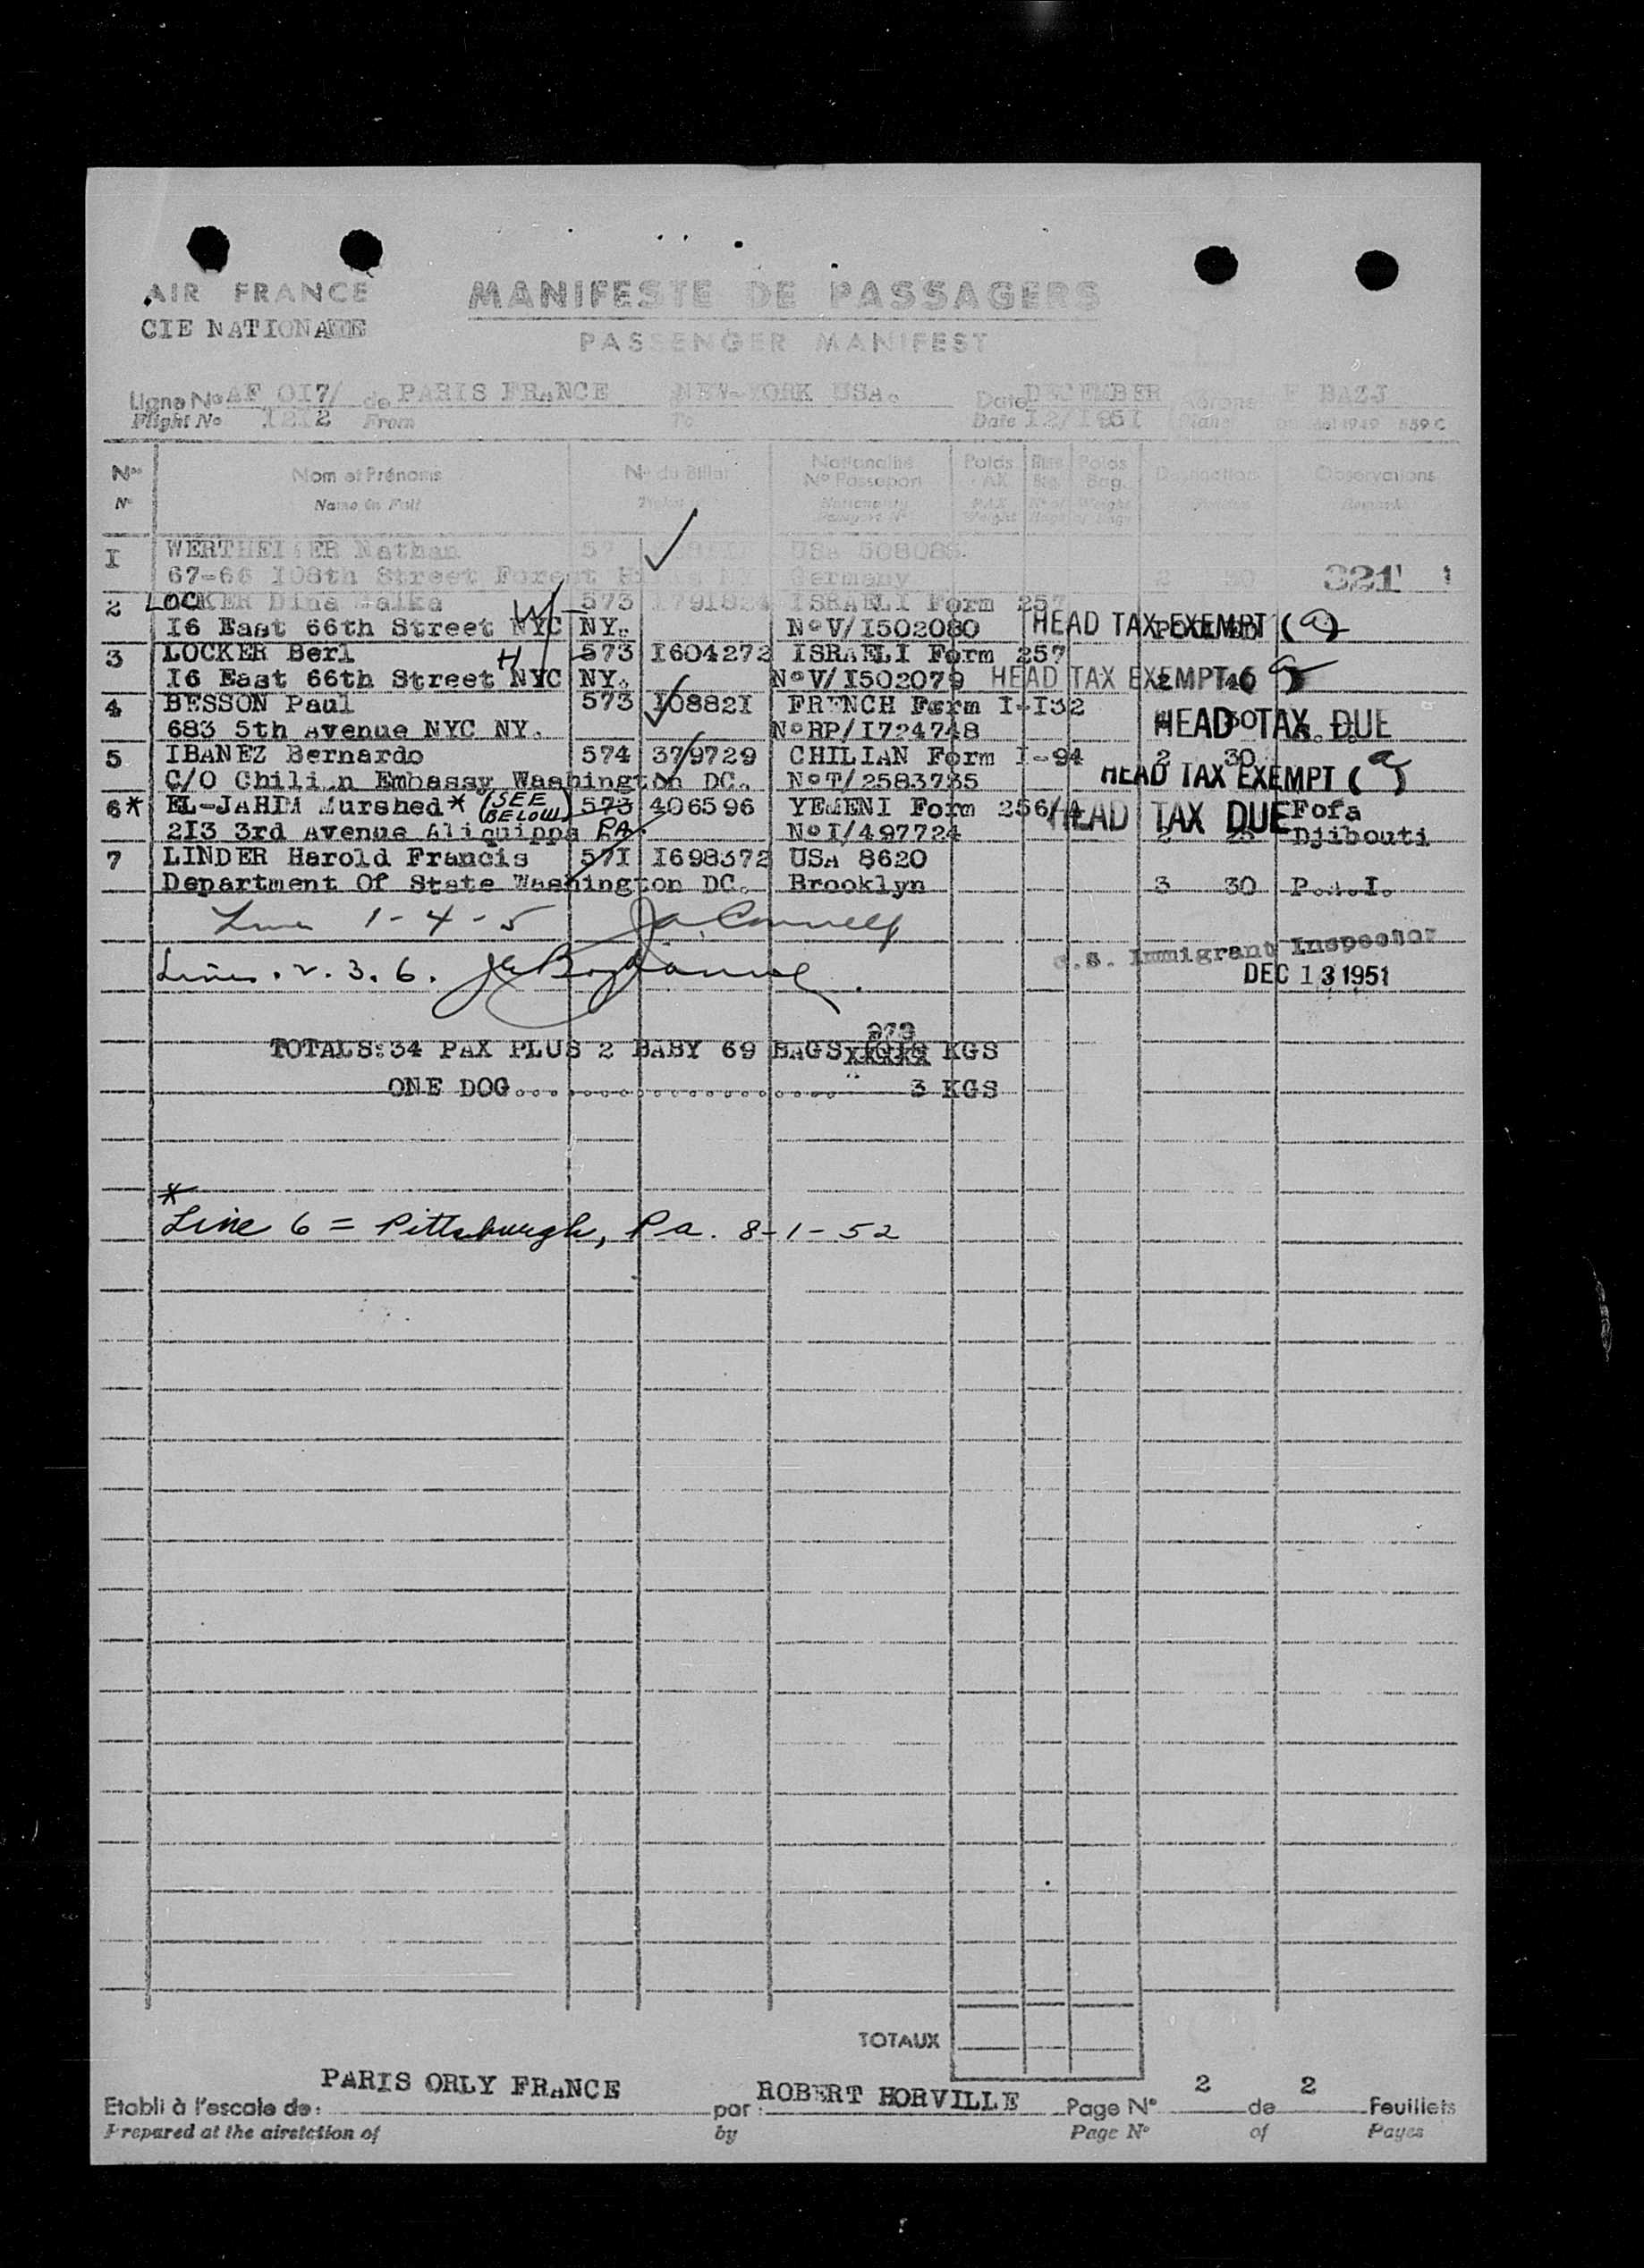 AIR FRANCE
MANIFESTE DE PASSAGERS
CIE NATIONALE
PASSENGER MANIFEST
Ligne No AF 017/ de PARIS FRANCE NEW-YORK USA. Date DECEMBER F BAZJ
Flight No 1212 From To Date 12/1951 559 C
Nos Nom et Prénoms No du Billet Nationalité Poids Poids Destination Observations
No Passeport Bag.
No Name in Full Ticket Nationality Weight
1 WERTHEIMER Nathan 57 USA
67-66 I08th Street Forest Hills Germany 2 321
2 LOCKER Dina Malka W 573 ISRAELI Form 257
I6 East 66th Street NYC NY. NoV/I502080 HEAD TAX EXEMPT (a)
3 LOCKER Berl H 573 I604272 ISRAELI Form 257
I6 East 66th Street NYC NY. NoV/I502079 HEAD TAX EXEMPT
4 BESSON Paul 573 I08821 FRENCH Form I-I32
683 5th Avenue NYC NY. NoRP/I724748 HEAD TAX DUE
5 IBANEZ Bernardo 574 379729 CHILIAN Form I-94 2 30
C/O Chilian Embassy Washington DC. NoT/2583735 HEAD TAX EXEMPT (a)
6* EL-JAHIM Murshed* (SEE BELOW) 573 406596 YEMENI Form 256/A HEAD TAX DUE Fofa
2I3 3rd Avenue Aliquippa PA. NoI/497724 Djibouti
7 LINDER Harold Francis 57I I698372 USA 8620
Department Of State Washington DC. Brooklyn 3 30 P.A.I.
Line 1-4-5
Lines . 2. 3. 6.
U.S. Immigrant Inspector
DEC 13 1951
973
TOTALS:34 PAX PLUS 2 BABY 69 BAGS KGS
ONE DOG.................... 3 KGS
*
Line 6 = Pittsburgh, Pa. 8-1-52
TOTAUX
PARIS ORLY FRANCE ROBERT HORVILLE 2 2
Etabli à l'escale de: par: Page No de Feuillets
Prepared at the airstation of by Page No of Pages